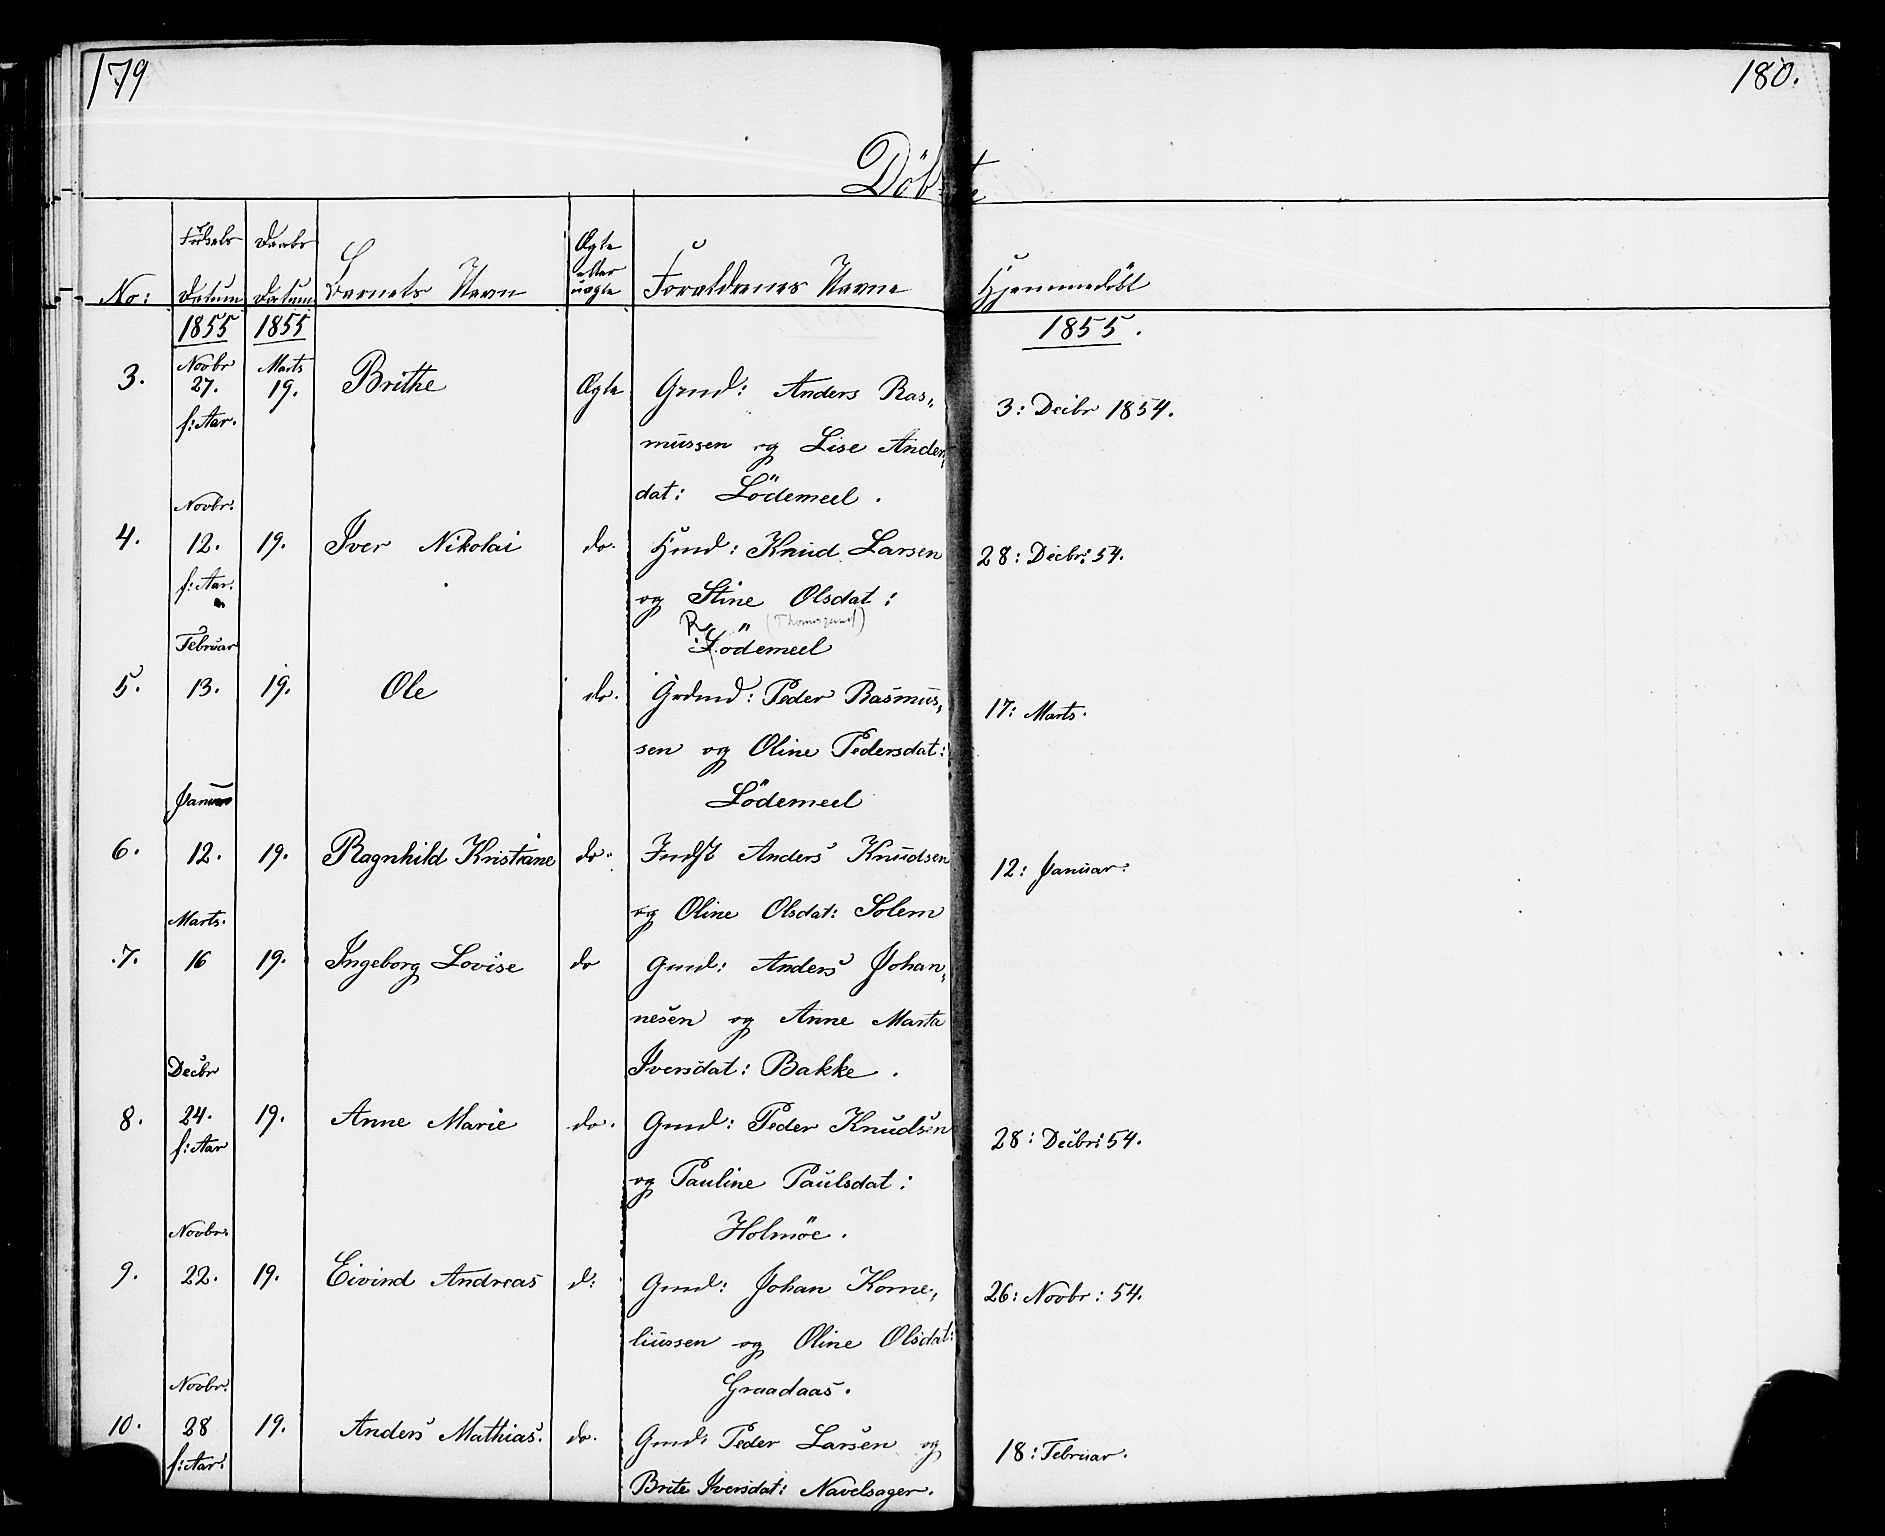 179
180.
Döbte
No:
Fødsels Datum
Daabs Datum
Barnets Navn
Ægte eller uægte
Forældrenes Navne
Hjemmedöbt
1855 1855
1855.
Novbr Marts
3. 27. 19. Brithe Ægte Gmd: Anders Ras„
3: Decbr 1854.
f: Aar.
mussen og Lise Anders„
dat: Lödemeel.
Novbr:
4. 12. 19. Iver Nikolai do. Hmd: Knud Larsen
28: Decbr: 54.
f: Aar.
og Stine Olsdat:
Lödemeel
Februar
5. 13. 19. Ole do. Grdmd: Peder Rasmus„
17: Marts.
sen og Oline Pedersdat:
Lödemeel
Januar
6. 12. 19. Ragnhild Kristiane do. Indst Anders Knudsen
12: Januar:
og Oline Olsdat: Solem
Marts.
7. 16 19. Ingeborg Lovise do Gmd: Anders Johan„
nesen og Anne Marta
Iversdat: Bakke.
Decbr
8. 24. 19. Anne Marie do. Gmd: Peder Knudsen
28: Decbr: 54.
f: Aar
og Pauline Paulsdat:
Holmöe.
Novbr:
9. 22. 19. Eivind Andreas d: Gmd: Johan Korne„
26: Novbr: 54.
liussen og Oline Olsdat:
Graadaas.
Novbr:
10. 28 19. Anders Mathias. do. Gmd: Peder Larsen og
18: Februar.
f: Aar:
Brite Iversdat: Navelsager.